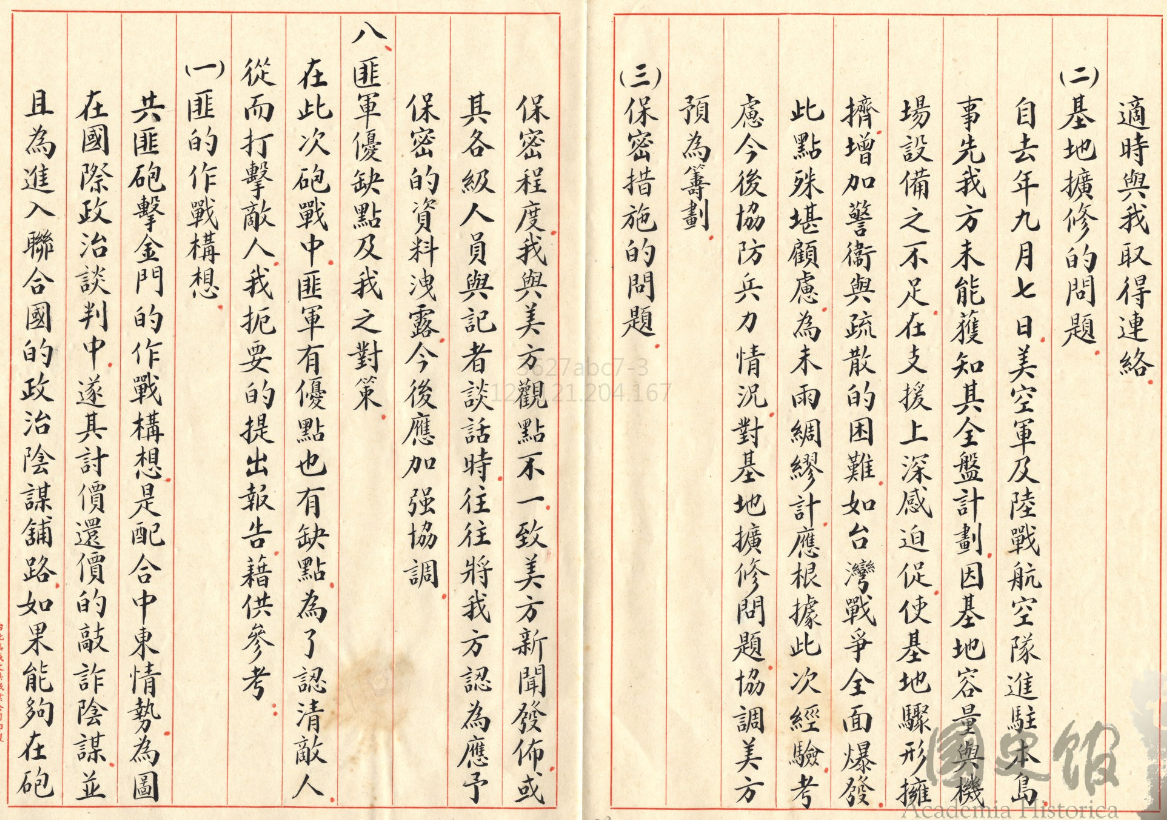 適時與我取得連絡。
(二)基地擴修的問題。
自去年九月七日。美空軍及陸戰航空隊進駐本島。
事先我方未能獲知其全盤計劃。因基地容量與機
場設備之不足。在支援上深感迫促。使基地驟形擁
擠。增加警衛與疏散的困難。如台灣戰爭全面爆發。
此點殊堪顧慮。為未雨綢繆計。應根據此次經驗。考
慮今後協防兵力情況。對基地擴修問題。協調美方
預為籌劃。
(三)保密措施的問題
保密程度。我與美方觀點不一致。美方新聞發佈。或
其各級人員與記者談話時。往往將我方認為應予
保密的資料洩露。今後應加强協調。
八、匪軍優缺點及我之對策。
在此次砲戰中。匪軍有優點也有缺點。為了認清敵人。
從而打擊敵人。我扼要的提出報告。藉供參考。:
(一)匪的作戰構想。
共匪砲擊金門的作戰構想。是配合中東情勢。為圖
在國際政治談判中。遂其討價還價的敲詐陰謀。並
且為進入聯合國的政治陰謀舖路。如果能夠在砲
3627abc7-3
121.204.167
國史館
Academia Historica